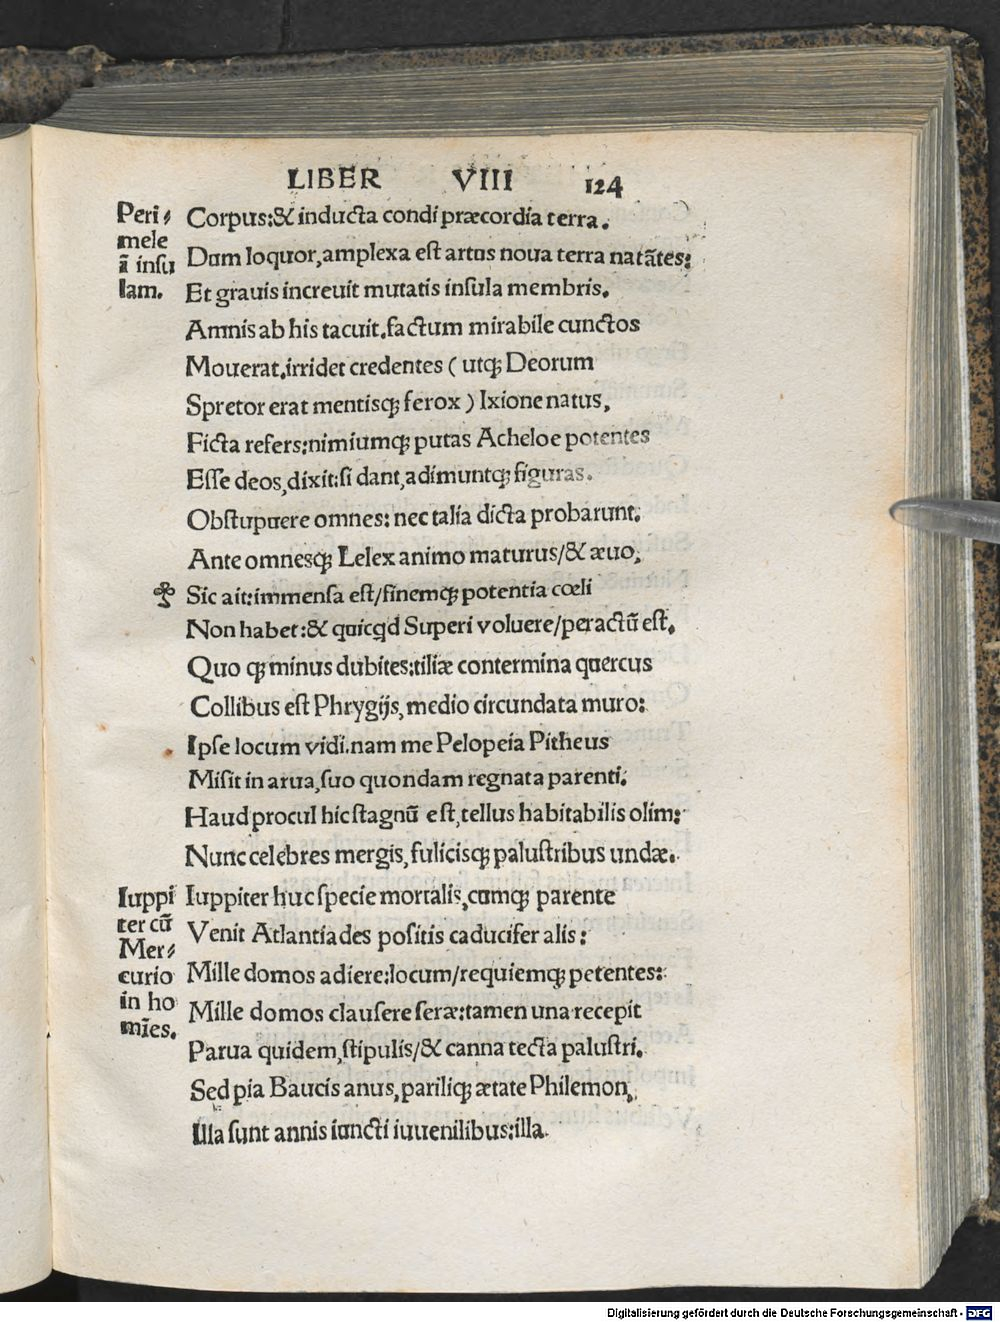 LIBER VIII 124
Peri⸗
mele
ī inſu
lam.
Corpus:& inducta condi præcordia terra.
Dum loquor,amplexa est artus noua terra natātes:
Et grauis increuit mutatis inſula membris.
Amnis ab his tacuit.factum mirabile cunctos
Mouerat.irridet credentes ( utqꝫ Deorum
Spretor erat mentisqꝫ ferox ) Ixione natus,
Ficta refers:nimiumqꝫ putas Acheloe potentes
Eſſe deos,dixit:ſi dant,adimuntqꝫ figuras.
Obſtupuere omnes: nec talia dicta probarunt:
Ante omnesqꝫ Lelex animo maturus/& æuo,
Sic ait:immenſa eſt/finemqꝫ potentia cœli
Non habet:& quicqd Superi voluere/peractū eſt.
Quo qꝫ minus dubites:tiliæ contermina quercus
Collibus eſt Phrygijs,medio circundata muro:
Ipſe locum vidi.nam me Pelopeia Pitheus
Miſit in arua,ſuo quondam regnata parenti.
Haud procul hic ſtagnū eſt,tellus habitabilis olim:
Nunc celebres mergis,fulicisqꝫ paluſtribus undæ.
Iuppi
ter cū
Mer⸗
curio
in ho
mīes.
Iuppiter huc ſpecie mortalis,cumqꝫ parente
Venit Atlantiades poſitis caducifer alis:
Mille domos adiere:locum/requiemqꝫ petentes:
Mille domos clauſere ſeræ:tamen una recepit
Parua quidem,ſtipulis/& canna tecta paluſtri.
Sed pia Baucis anus,pariliqꝫ ætate Philemon,
Illa ſunt annis iuncti iuuenilibus:illa
Digitalisierung gefördert durch die Deutsche Forschungsgemeinschaft - DFG